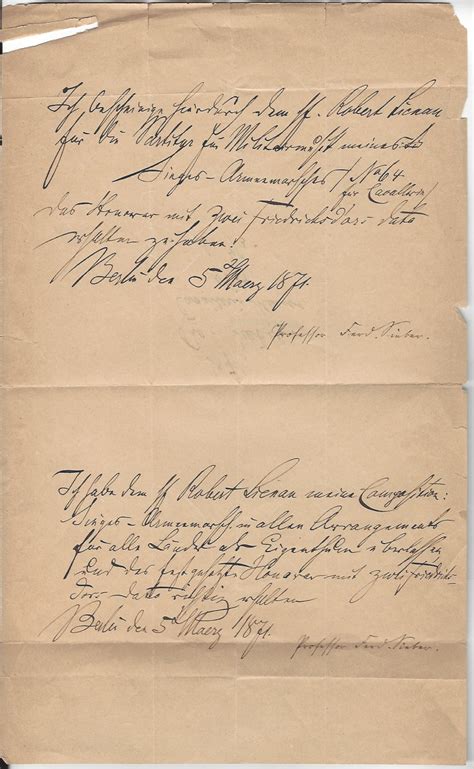 Ich bescheinige hierdurch dem H. Robert Lienau
für die Partitur für Militairmusik meines
Sieges-Armeemarsches / No 64 für Cavallerie /
das Honorar mit zwei Friedrichsdors dato
erhalten zu haben.
Berlin den 5 Maerz 1871.
Professor Ferd. Sieber.
Ich habe dem H. Robert Lienau meine Composition:
Sieges-Armeemarsch in allen Arrangements
für alle Länder als Eigenthum überlassen
und das festgesetzte Honorar mit zwei Friedrichs-
dors dato richtig erhalten
Berlin den 5 Maerz 1871.
Professor Ferd. Sieber.